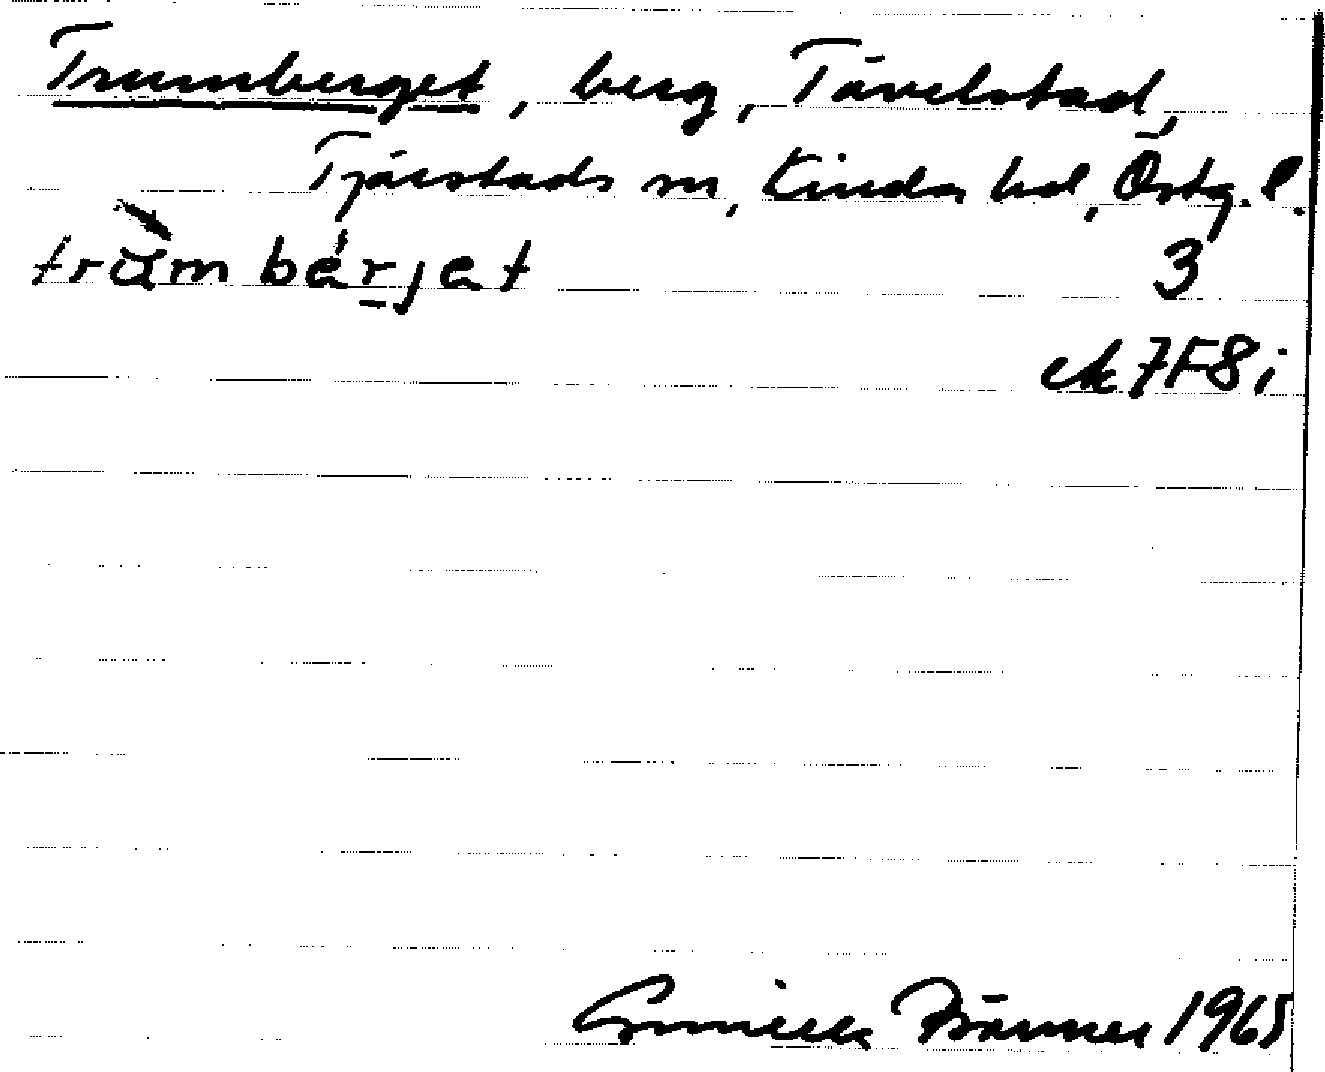 Trumberget, berg, Tävelstad,
Tjärstads sn, Kinda hd, Östg. l.
trùm bérjet 3
ek 7F8i
Gunilla Bränner 1965